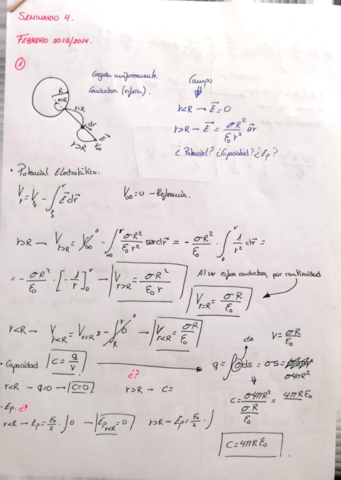 SEMINARIO 4.
FEBRERO 2013/2014.
①
Cargada uniformemente.
Conductora (esfera).
Campo
r<R → E⃗=0
r>R → E⃗ = σR²/ε₀r² u⃗r
¿Potencial? ¿Capacidad? ¿Ep?
R
r<R
r>R
• Potencial Electrostático.
V∞=0 → Referencia.
r>R → V r>R = V∞ - ∫∞^r σR²/ε₀r² dr⃗ = - σR²/ε₀ · ∫ 1/r² dr⃗ =
= - σR²/ε₀ · [-1/r] → V r>R = σR²/ε₀r
Al ser esfera conductora, por continuidad
V r=R = σR/ε₀
r<R → V r<R = V r=R - ∫ 0 → V r<R = σR/ε₀
V = σR/ε₀
• Capacidad C = q/V
¿?
q = ∫σds = σS =
σ4πR²
r<R → q=0 → C=0
r>R → C=
C = σ4πR²/(σR/ε₀) = 4πRε₀
• Ep. ¿?
r<R → Ep = ε₀/2 · ∫0 → Ep r<R = 0
r>R → Ep = ε₀/2 · ∫
C = 4πRε₀